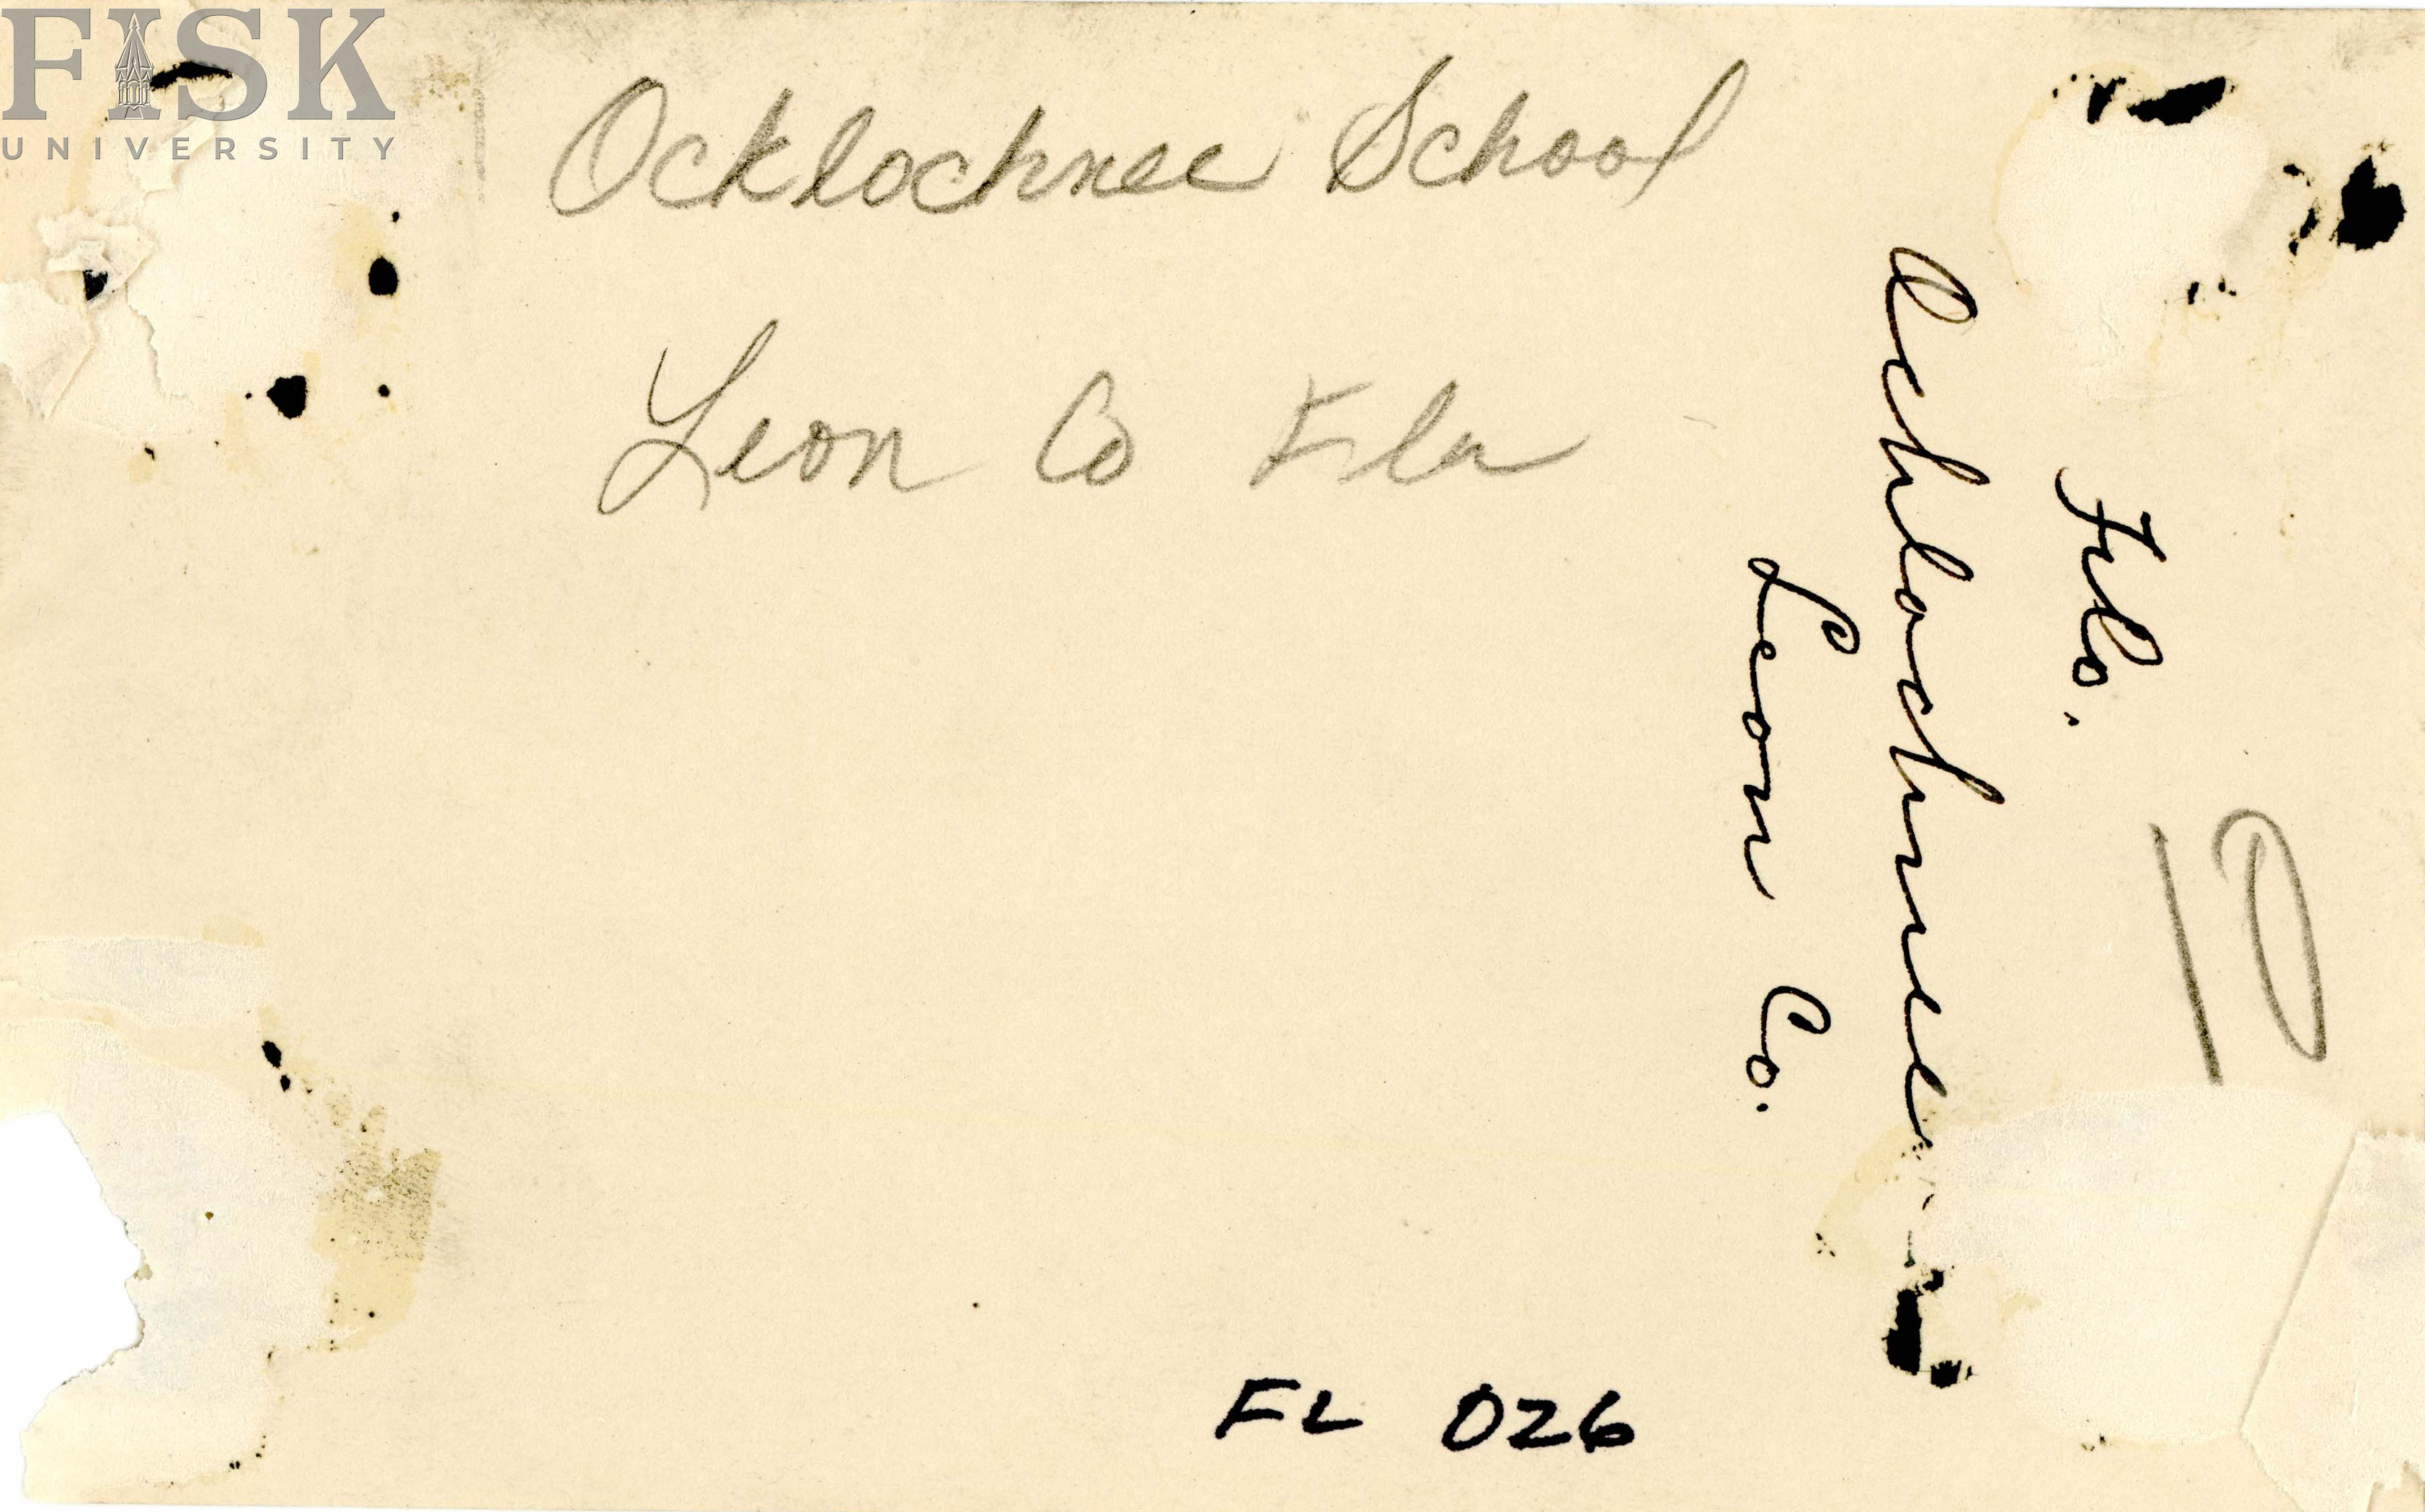 FISK
UNIVERSITY
Ocklochnee School
Leon Co Fla
Fla.
Ochlochnee
Leon Co.
10
FL 026